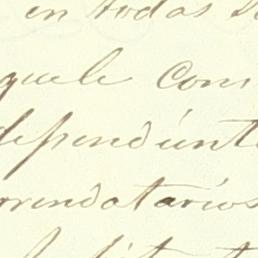 en todas
quele com
dependiente
rrendatarios